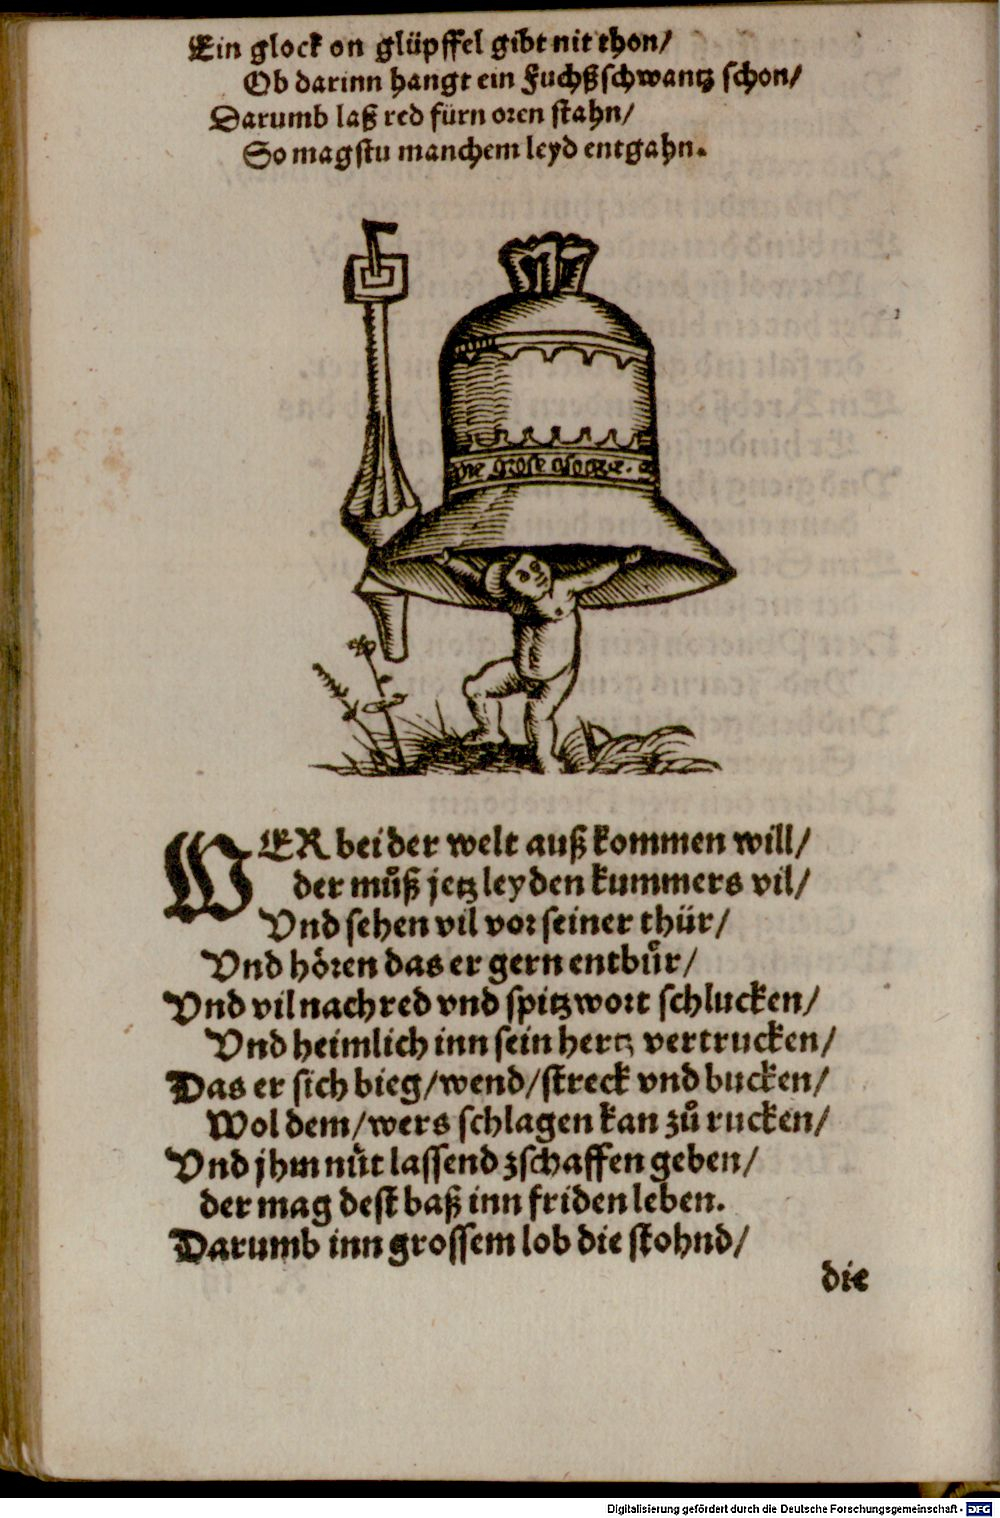 Ein glock on glüpffel gibt nit thon/
Ob darinn hangt ein Fuchßschwantz schon/
Darumb laß red fürn oren stahn/
So magstu manchem leyd entgahn.
WER bei der welt auß kommen will/
der muͦß jetz leyden kummers vil/
Vnd sehen vil vor seiner thür/
Vnd hören das er gern entbuͦr/
Vnd vil nachred vnd spitzwort schlucken/
Vnd heimlich inn sein hertz vertrucken/
Das er sich bieg/wend/streck vnd bucken/
Wol dem/wers schlagen kan zuͦ rucken/
Vnd jhm nüt lassend zschaffen geben/
der mag dest baß inn friden leben.
Darumb inn grossem lob die stohnd/
die
Digitalisierung gefördert durch die Deutsche Forschungsgemeinschaft - DFG